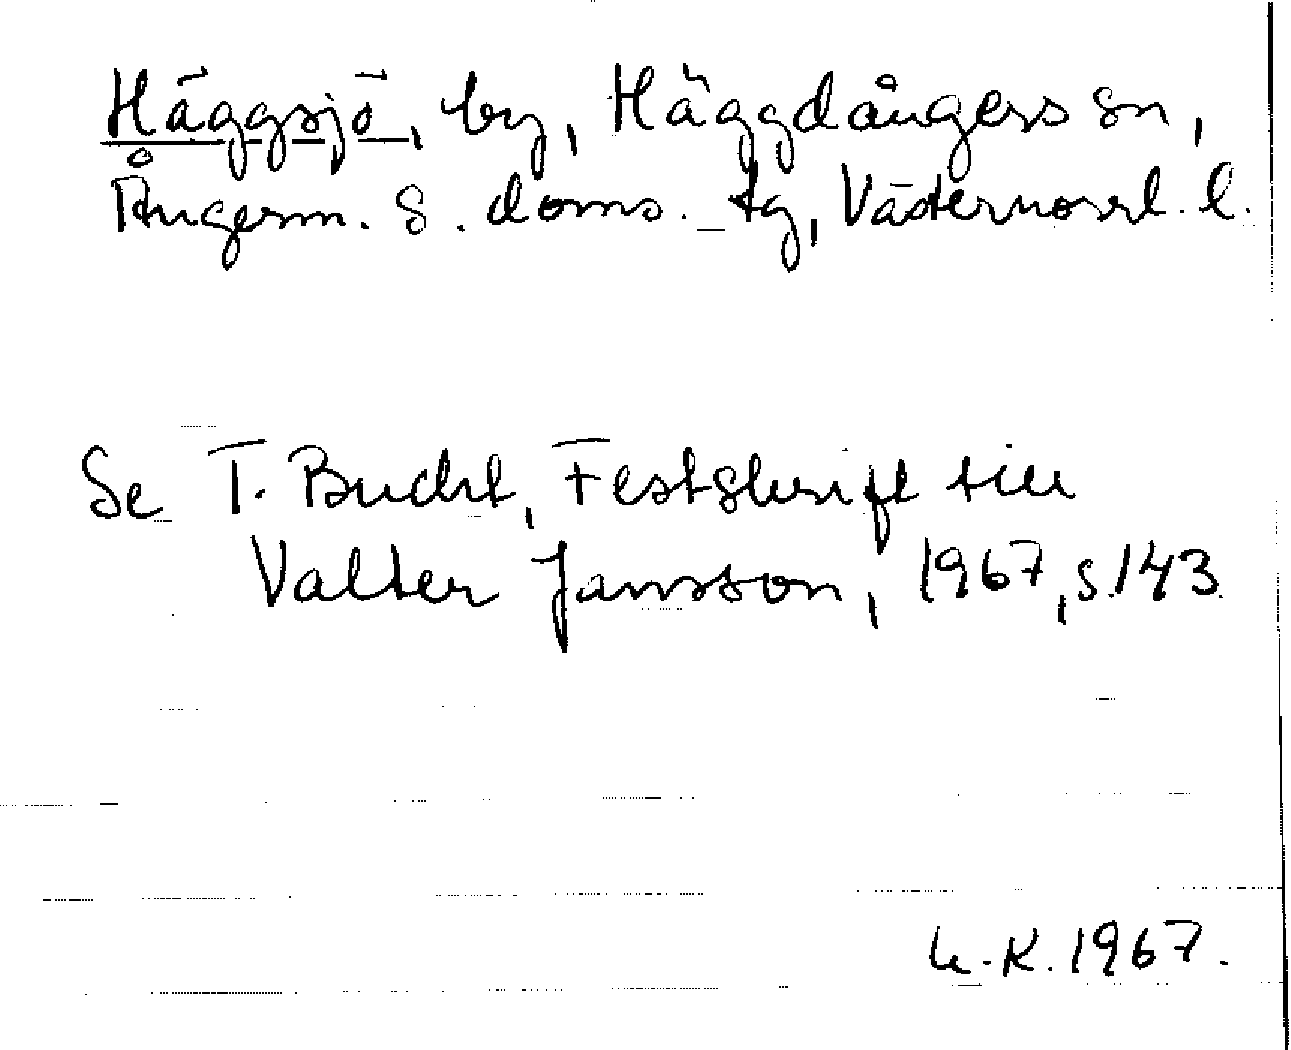 Häggsjö, by, Häggdångers sn,
Ångerm. s. doms. tg, Västernorrl. l.
Se T. Bucht, Festskrift till
Valter Jansson, 1967, s. 143
K. 1967.